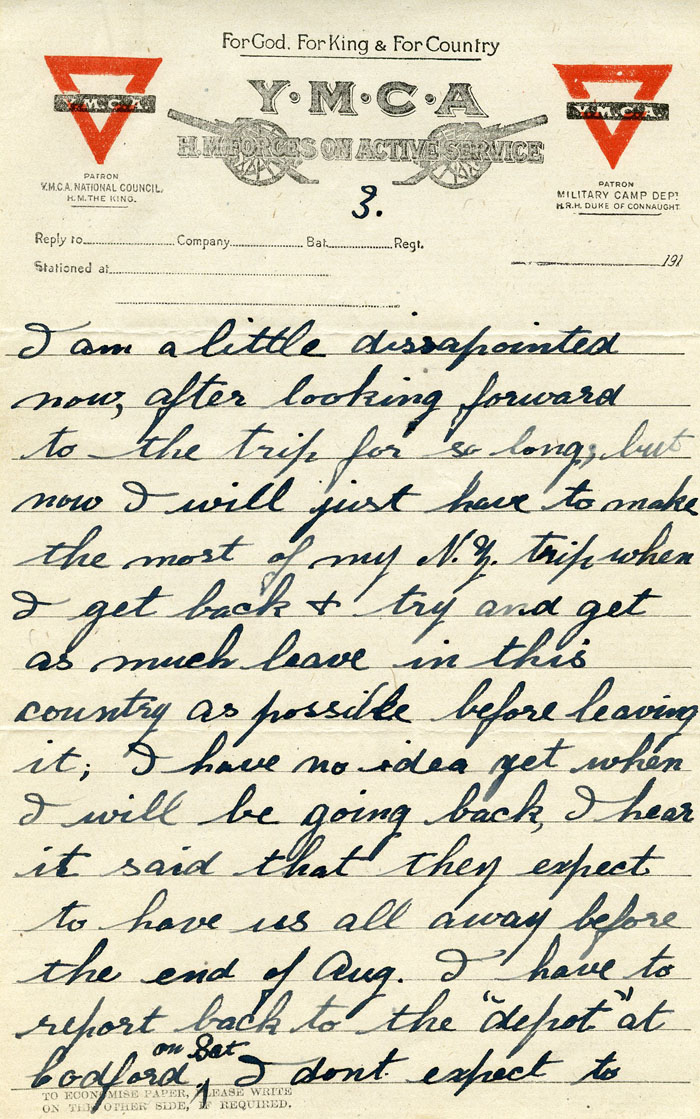 For God. For King & For Country
Y·M·C·A
H.M. FORCES ON ACTIVE SERVICE
Y.M.C.A
Y.M.C.A
PATRON
Y.M.C.A. NATIONAL COUNCIL.
H.M. THE KING.
PATRON
MILITARY CAMP DEPT
H.R.H. DUKE OF CONNAUGHT.
3.
Reply to Company Bat. Regt.
Stationed at
191
I am a little dissapointed
now, after looking forward
to the trip for so long, but
now I will just have to make
the most of my N.Z. trip when
I get back & try and get
as much leave in this
country as possible before leaving
it; I have no idea yet when
I will be going back, I hear
it said that they expect
to have us all away before
the end of Aug. I have to
report back to the "depot" at
Codford on Sat, I dont expect to
TO ECONOMISE PAPER, PLEASE WRITE
ON THE OTHER SIDE, IF REQUIRED.